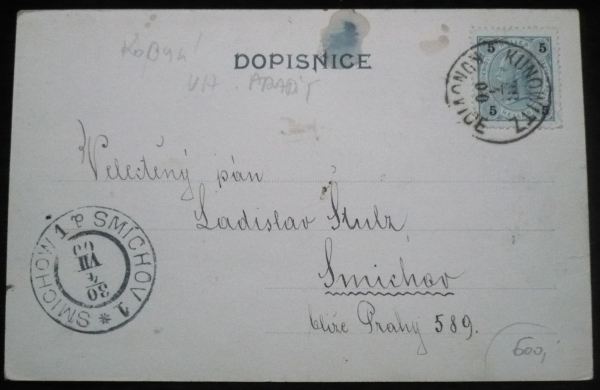 DOPISNICE
5 5
5 5
KUNOWITZ KUNOVICE
00
Velectěný pán
Ladislav Štulz
Smichov
blíže Prahy 589.
SMICHOW 1 SMÍCHOV 1
30
7
VII
00
600,